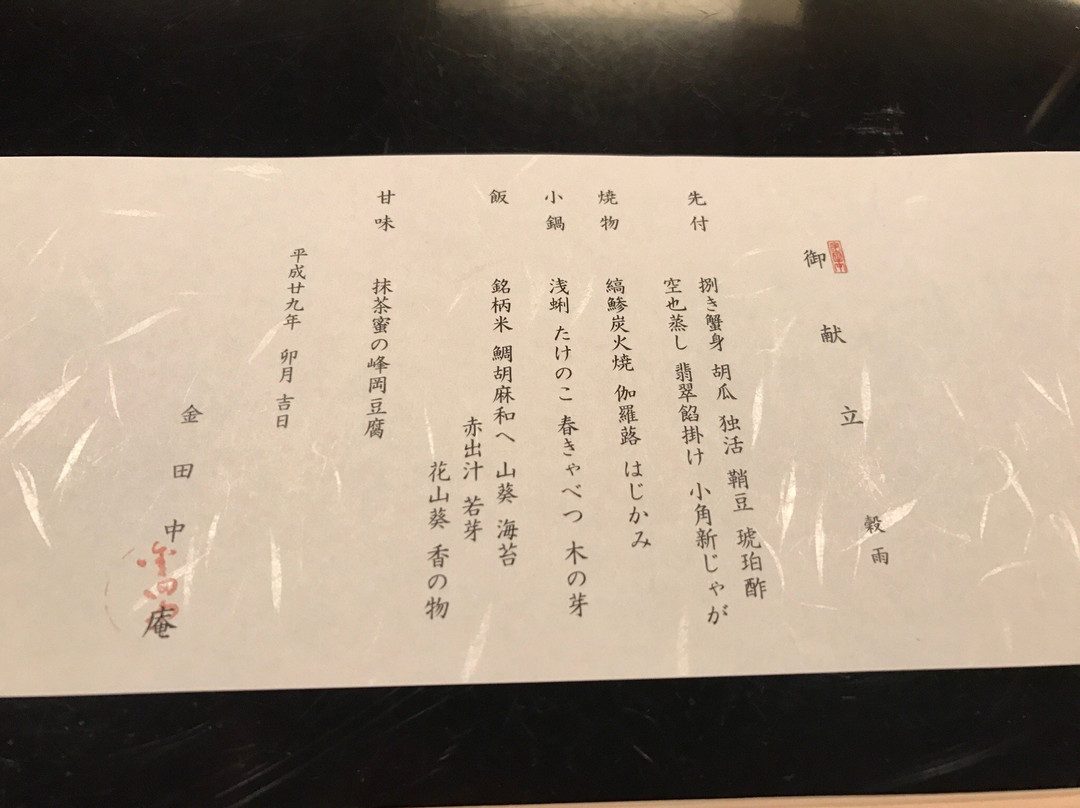 御献立 穀雨
先付 捌き蟹身 胡瓜 独活 鞘豆 琥珀酢
空也蒸し 翡翠餡掛け 小角新じゃが
焼物 縞鯵炭火焼 伽羅蕗 はじかみ
小鍋 浅蜊 たけのこ 春きゃべつ 木の芽
飯 銘柄米 鯛胡麻和へ 山葵 海苔
赤出汁 若芽
花山葵 香の物
甘味 抹茶蜜の峰岡豆腐
平成廿九年 卯月 吉日
金田中 庵